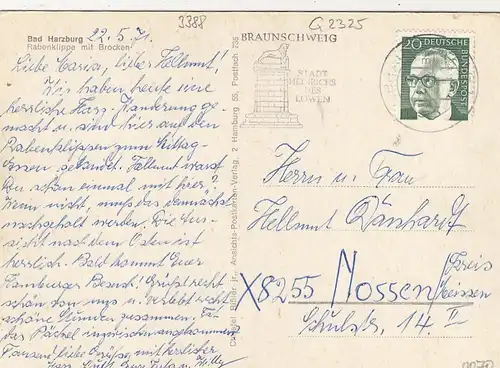 3388
G 2325
Bad Harzburg 22.5.71.
Rabenklippe mit Brocken
Liebe Maria, lieber Hellmut!
Wir haben heute eine
herrliche Harz-Wanderung ge-
macht u. sind hier auf den
Rabenklippen zum Mittag-
essen gelandet. Hellmut warst
Du schon einmal mit hier?
Wenn nicht, muß das demnächst
nachgeholt werden. Die Aus-
sicht nach dem Osten ist
herrlich. Bald kommt Euer
Hamburger Besuch! Grüßt recht
schön von uns u. verlebt recht
schöne Stunden zusammen.
das Päckel inzwischen angekommen?
Tausend liebe Grüße mit herzlicher
BRAUNSCHWEIG
STADT
HEINRICHS
DES
LÖWEN
20 DEUTSCHE
BUNDESPOST
Ansichts-Postkarten-Verlag, 2 Hamburg 55, Postfach 735
Herrn u. Frau
Hellmut
X8255 Nossen
Kreis
Meissen
Schulstr. 14 II